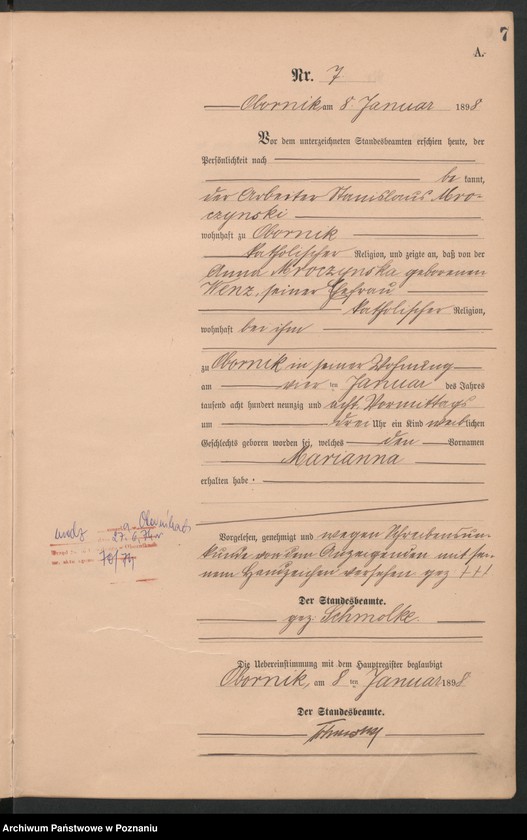 7
A.
Nr. 7
Obornik am 8 Januar 1898
Vor dem unterzeichneten Standesbeamten erschien heute, der
Persönlichkeit nach
be kannt,
der Arbeiter Stanislaus Mro-
czynski
wohnhaft zu Obornik
katholischer Religion, und zeigte an, daß von der
Anna Mroczynska geborenen
Wenz, seiner Ehefrau
katholischer Religion,
wohnhaft bei ihm
zu Obornik in seiner Wohnung
am vier ten Januar des Jahres
tausend acht hundert neunzig und acht Vormittags
um drei Uhr ein Kind weiblichen
Geschlechts geboren worden sei, welches den Vornamen
Marianna
erhalten habe.
Vorgelesen, genehmigt und wegen Schreibensun-
kunde von dem Anzeigenden mit sei-
nem Handzeichen versehen gez +++
Der Standesbeamte.
gez. Schmolke.
Die Uebereinstimmung mit dem Hauptregister beglaubigt
Obornik, am 8 ten Januar 1898
Der Standesbeamte.
Schmolke
27. 6. 74
76/74
Archiwum Państwowe w Poznaniu